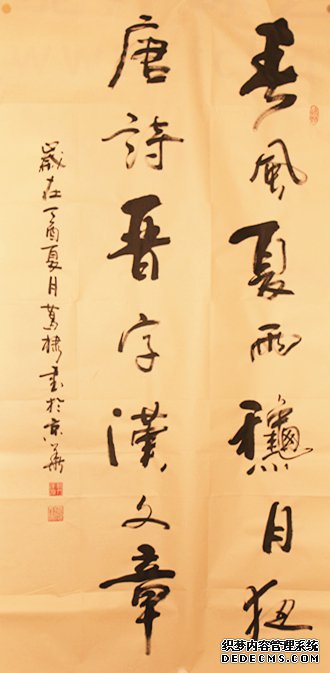 春風夏雨龝月夜
唐詩晋字漢文章
歲在丁酉夏月書於京華
织梦内容管理系统
DEDECMS.COM